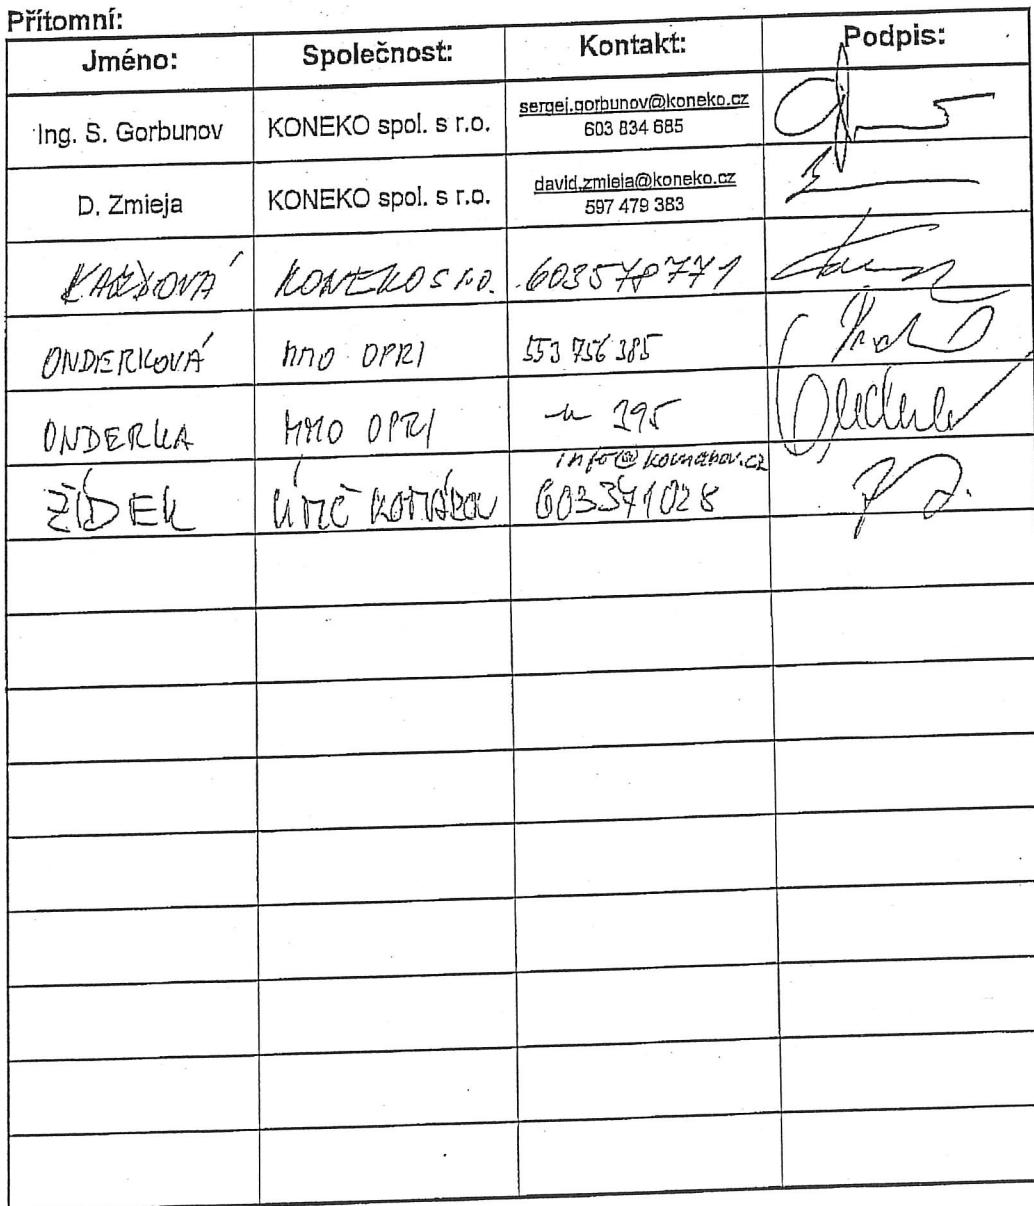 Přítomní:
Jméno: Společnost: Kontakt: Podpis:
Ing. S. Gorbunov KONEKO spol. s r.o. sergej.gorbunov@koneko.cz
603 834 685
D. Zmieja KONEKO spol. s r.o. david.zmieja@koneko.cz
597 479 383
KONEKO s r.o. 603578771
ONDERKOVÁ MMO OPRI 553 756 385
ONDERKA MMO OPRI -u- 395
info@komarov.cz
ŽÍDEK ÚMČ KOMÁROV 603371028